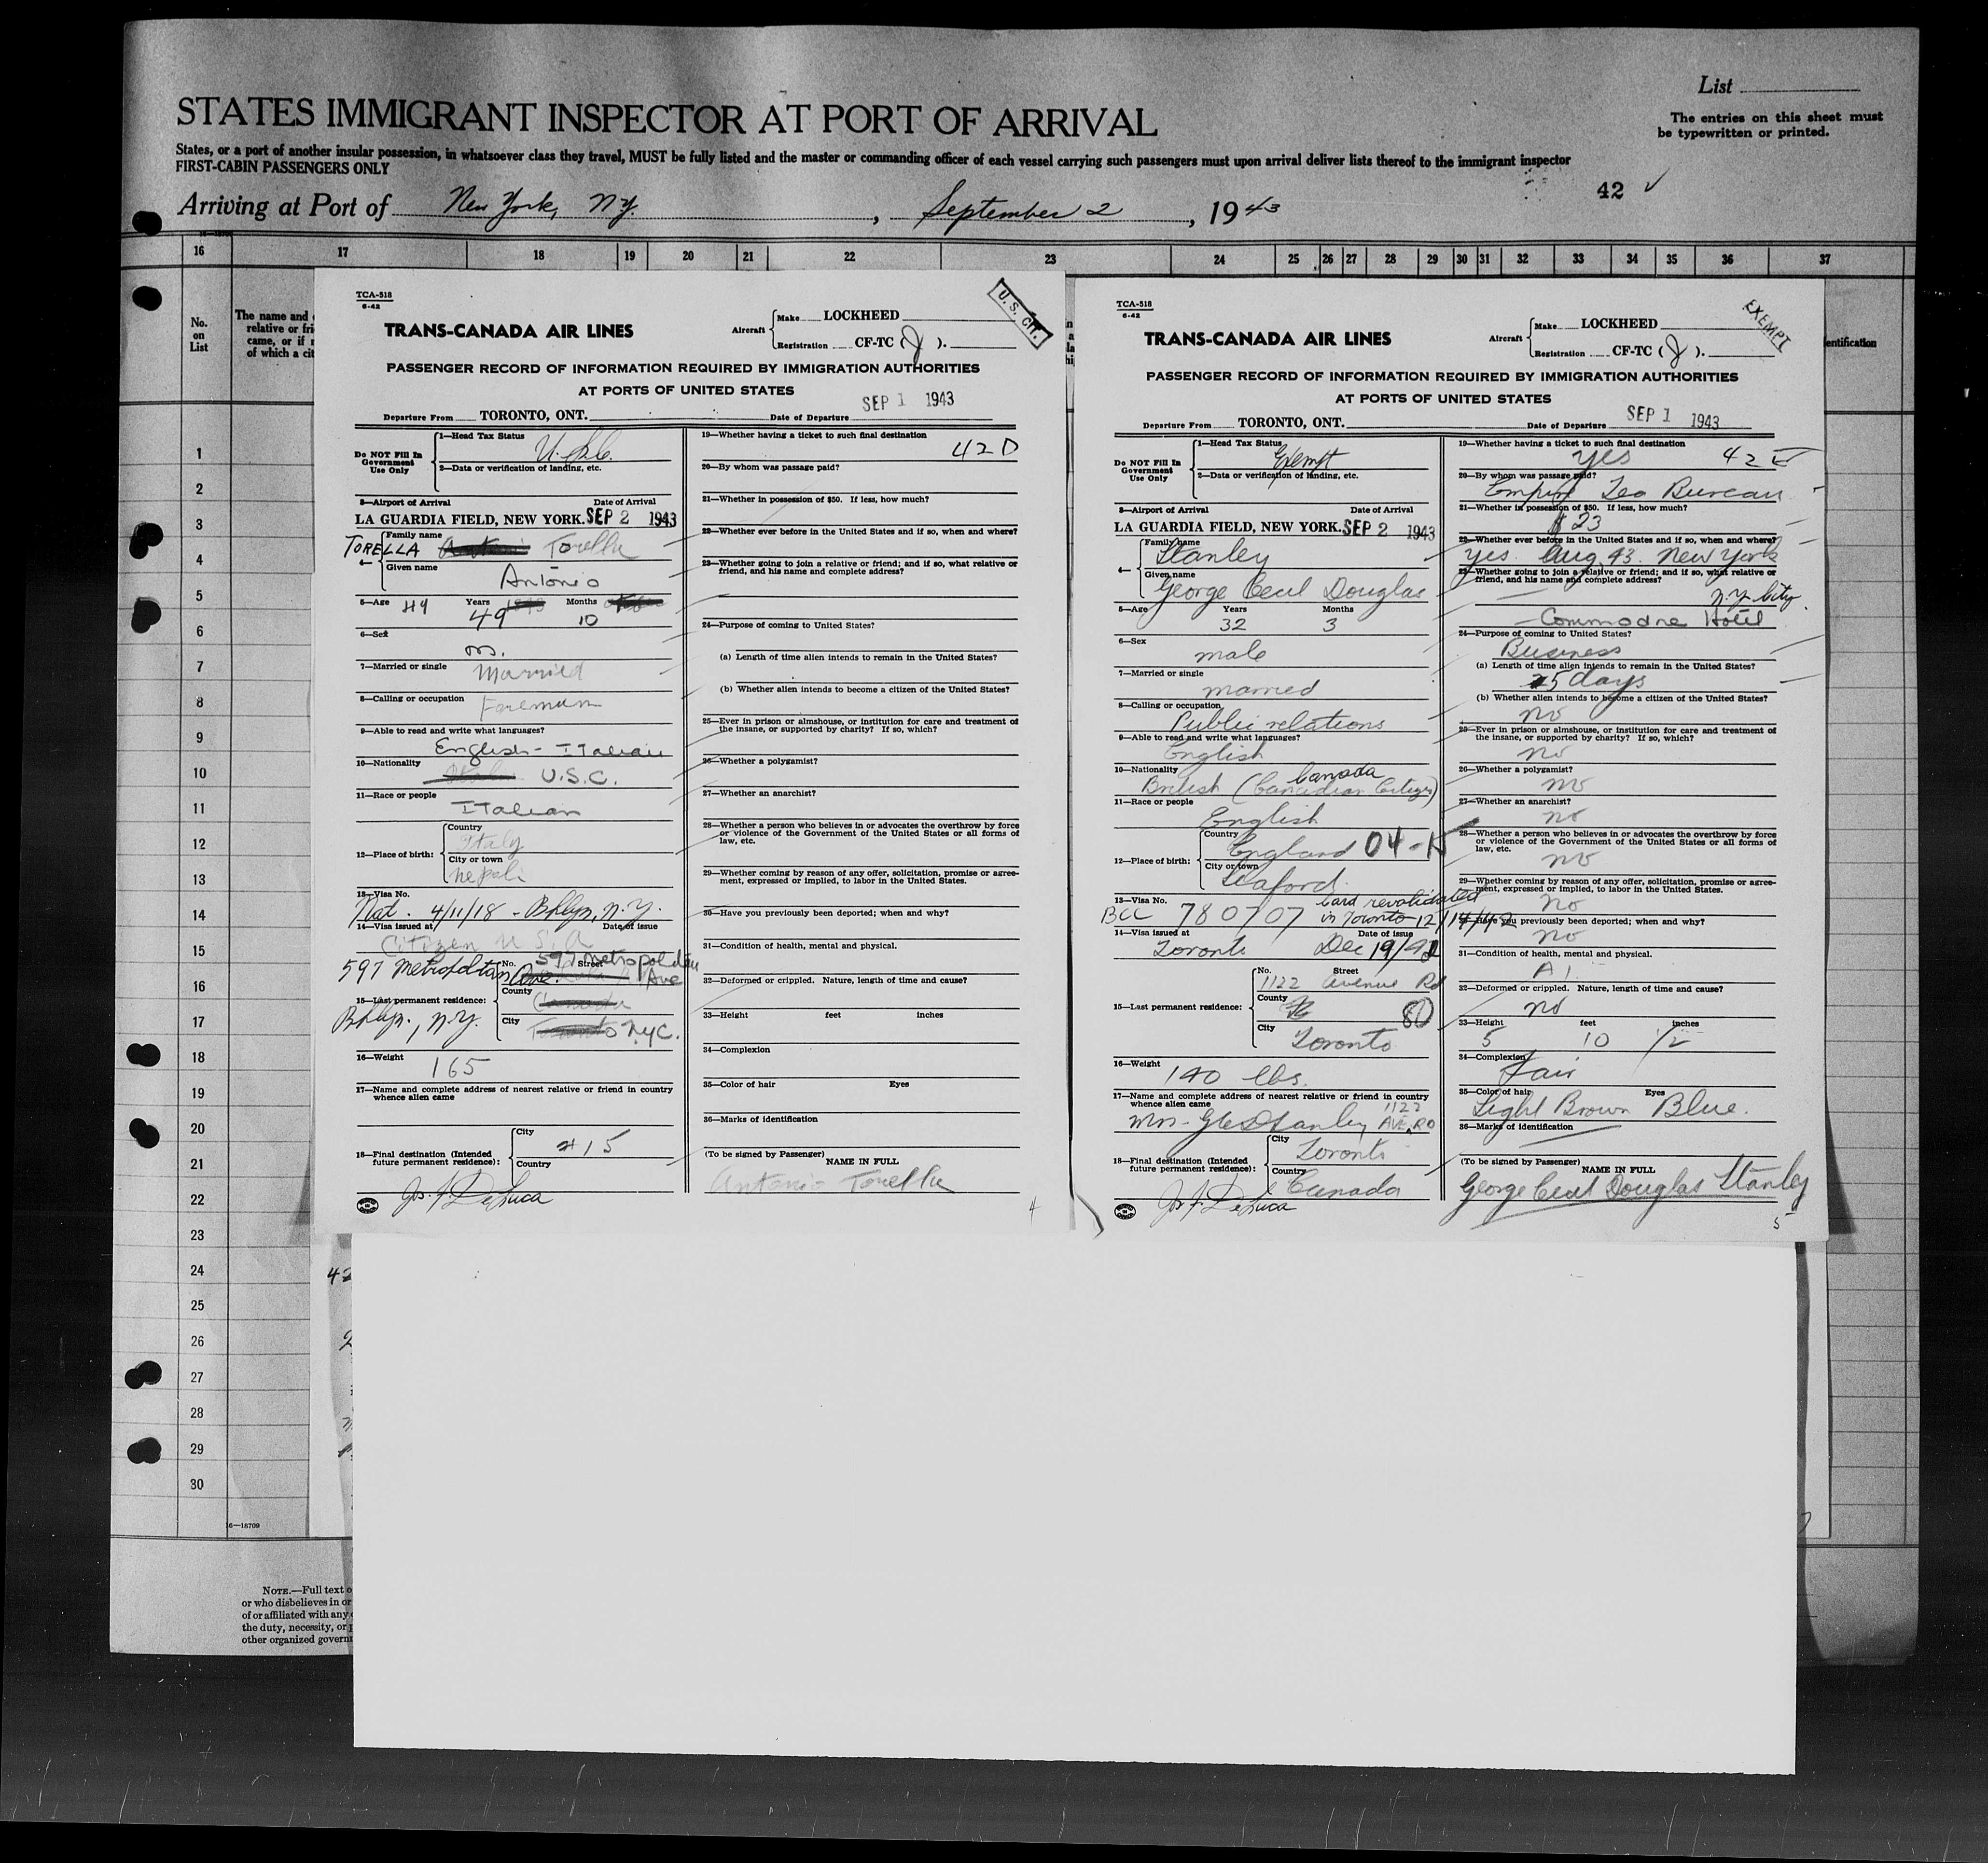 List
STATES IMMIGRANT INSPECTOR AT PORT OF ARRIVAL
The entries on this sheet must
be typewritten or printed.
States, or a port of another insular possession, in whatsoever class they travel, MUST be fully listed and the master or commanding officer of each vessel carrying such passengers must upon arrival deliver lists thereof to the immigrant inspector
FIRST-CABIN PASSENGERS ONLY
42
Arriving at Port of New York, N.Y., September 2, 1943
16 17 18 19 20 21 22 23 24 25 26 27 28 29 30 31 32 33 34 35 36 37
No.
on
List
The name and
relative or fri
came, or if
of which a cit
entification
1
2
3
4
5
6
7
8
9
10
11
12
13
14
15
16
17
18
19
20
21
22
23
24
25
26
27
28
29
30
16—18709
NOTE.—Full text o
or who disbelieves in or
of or affiliated with any
the duty, necessity, or p
other organized governm
TCA-518
6-42
U.S. CIT.
TRANS-CANADA AIR LINES
Aircraft
Make LOCKHEED
Registration CF-TC (J).
PASSENGER RECORD OF INFORMATION REQUIRED BY IMMIGRATION AUTHORITIES
AT PORTS OF UNITED STATES
Departure From TORONTO, ONT. Date of Departure SEP 1 1943
Do NOT Fill In
Government
Use Only
1—Head Tax Status
2—Data or verification of landing, etc.
3—Airport of Arrival Date of Arrival
LA GUARDIA FIELD, NEW YORK. SEP 2 1943
4—
Family name
TORELLA Torella
Given name Antonio
5—Age 49 Years 49 Months 10
6—Sex m.
7—Married or single Married
8—Calling or occupation Foreman
9—Able to read and write what languages?
English - Italian
10—Nationality U.S.C.
11—Race or people Italian
12—Place of birth:
Country Italy
City or town
13—Visa No.
Nat. 4/11/18 - Bklyn, N.Y.
14—Visa issued at Date of issue
Citizen U S A
15—Last permanent residence:
No. Street
597 Metropolitan Ave
597 Metropolitan Ave.
County
City N.Y.C.
Bklyn., N.Y.
16—Weight 165
17—Name and complete address of nearest relative or friend in country
whence alien came
18—Final destination (Intended
future permanent residence):
City #15
Country
Jos. J. DeLuca
19—Whether having a ticket to such final destination
42 D
20—By whom was passage paid?
21—Whether in possession of $50. If less, how much?
22—Whether ever before in the United States and if so, when and where?
23—Whether going to join a relative or friend; and if so, what relative or
friend, and his name and complete address?
24—Purpose of coming to United States?
(a) Length of time alien intends to remain in the United States?
(b) Whether alien intends to become a citizen of the United States?
25—Ever in prison or almshouse, or institution for care and treatment of
the insane, or supported by charity? If so, which?
26—Whether a polygamist?
27—Whether an anarchist?
28—Whether a person who believes in or advocates the overthrow by force
or violence of the Government of the United States or all forms of
law, etc.
29—Whether coming by reason of any offer, solicitation, promise or agree-
ment, expressed or implied, to labor in the United States.
30—Have you previously been deported; when and why?
31—Condition of health, mental and physical.
32—Deformed or crippled. Nature, length of time and cause?
33—Height feet inches
34—Complexion
35—Color of hair Eyes
36—Marks of identification
(To be signed by Passenger) NAME IN FULL
Antonio Torella
4
TCA-518
6-42
EXEMPT
TRANS-CANADA AIR LINES
Aircraft
Make LOCKHEED
Registration CF-TC (J).
PASSENGER RECORD OF INFORMATION REQUIRED BY IMMIGRATION AUTHORITIES
AT PORTS OF UNITED STATES
Departure From TORONTO, ONT. Date of Departure SEP 1 1943
Do NOT Fill In
Government
Use Only
1—Head Tax Status
Exempt
2—Data or verification of landing, etc.
3—Airport of Arrival Date of Arrival
LA GUARDIA FIELD, NEW YORK. SEP 2 1943
4—
Family name
Stanley
Given name
George Cecil Douglas
5—Age Years 32 Months 3
6—Sex male
7—Married or single married
8—Calling or occupation
Public relations
9—Able to read and write what languages?
English
10—Nationality Canada
British (Canadian Citizen)
11—Race or people
English
12—Place of birth:
Country England 04-
City or town
Seaford
13—Visa No. Card revalidated
BCC 780707 in Toronto 12/14/42
14—Visa issued at Date of issue
Toronto Dec 19/
15—Last permanent residence:
No. Street
1122 Avenue Rd
County 80
City
Toronto
16—Weight
140 lbs.
17—Name and complete address of nearest relative or friend in country
whence alien came
1122
Mrs - Stanley AVE. RD
18—Final destination (Intended
future permanent residence):
City
Toronto
Country
Canada
Jos. J. DeLuca
19—Whether having a ticket to such final destination
yes 42 E
20—By whom was passage paid?
Empire Tea Bureau
21—Whether in possession of $50. If less, how much?
$23
22—Whether ever before in the United States and if so, when and where?
yes. Aug. 43. New York
23—Whether going to join a relative or friend; and if so, what relative or
friend, and his name and complete address?
N.Y. City
- Commodore Hotel
24—Purpose of coming to United States?
Business
(a) Length of time alien intends to remain in the United States?
5 days
(b) Whether alien intends to become a citizen of the United States?
no
25—Ever in prison or almshouse, or institution for care and treatment of
the insane, or supported by charity? If so, which?
no
26—Whether a polygamist?
no
27—Whether an anarchist?
no
28—Whether a person who believes in or advocates the overthrow by force
or violence of the Government of the United States or all forms of
law, etc.
no
29—Whether coming by reason of any offer, solicitation, promise or agree-
ment, expressed or implied, to labor in the United States.
no
30—Have you previously been deported; when and why?
no
31—Condition of health, mental and physical.
A1
32—Deformed or crippled. Nature, length of time and cause?
no
33—Height feet inches
5 10 1/2
34—Complexion
Fair
35—Color of hair Eyes
Light Brown Blue.
36—Marks of identification
(To be signed by Passenger) NAME IN FULL
George Cecil Douglas Stanley
5